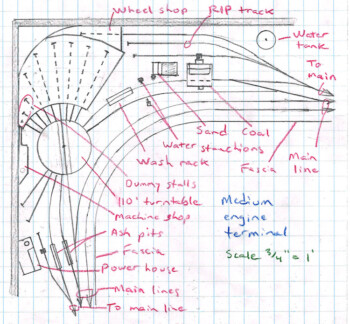 Wheel shop
RIP track
Water
tank
To
main
Sand
Coal
Water stanctions
Main
line
Wash rack
Fascia
Dummy stalls
110' turntable
Machine shop
Medium
engine
terminal
Ash pits
Fascia
Scale 3/4" = 1'
Power house
Main lines
To main line